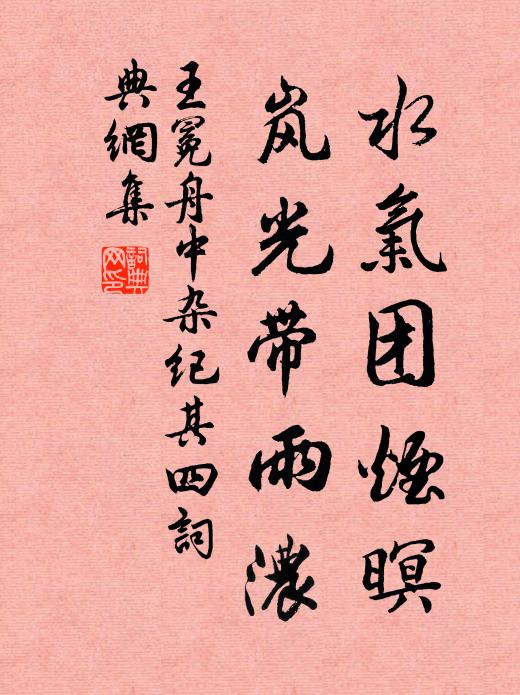 水氣团煙暝
岚光带雨濃
王冕舟中杂纪其四詞
典網集
詞典
网印